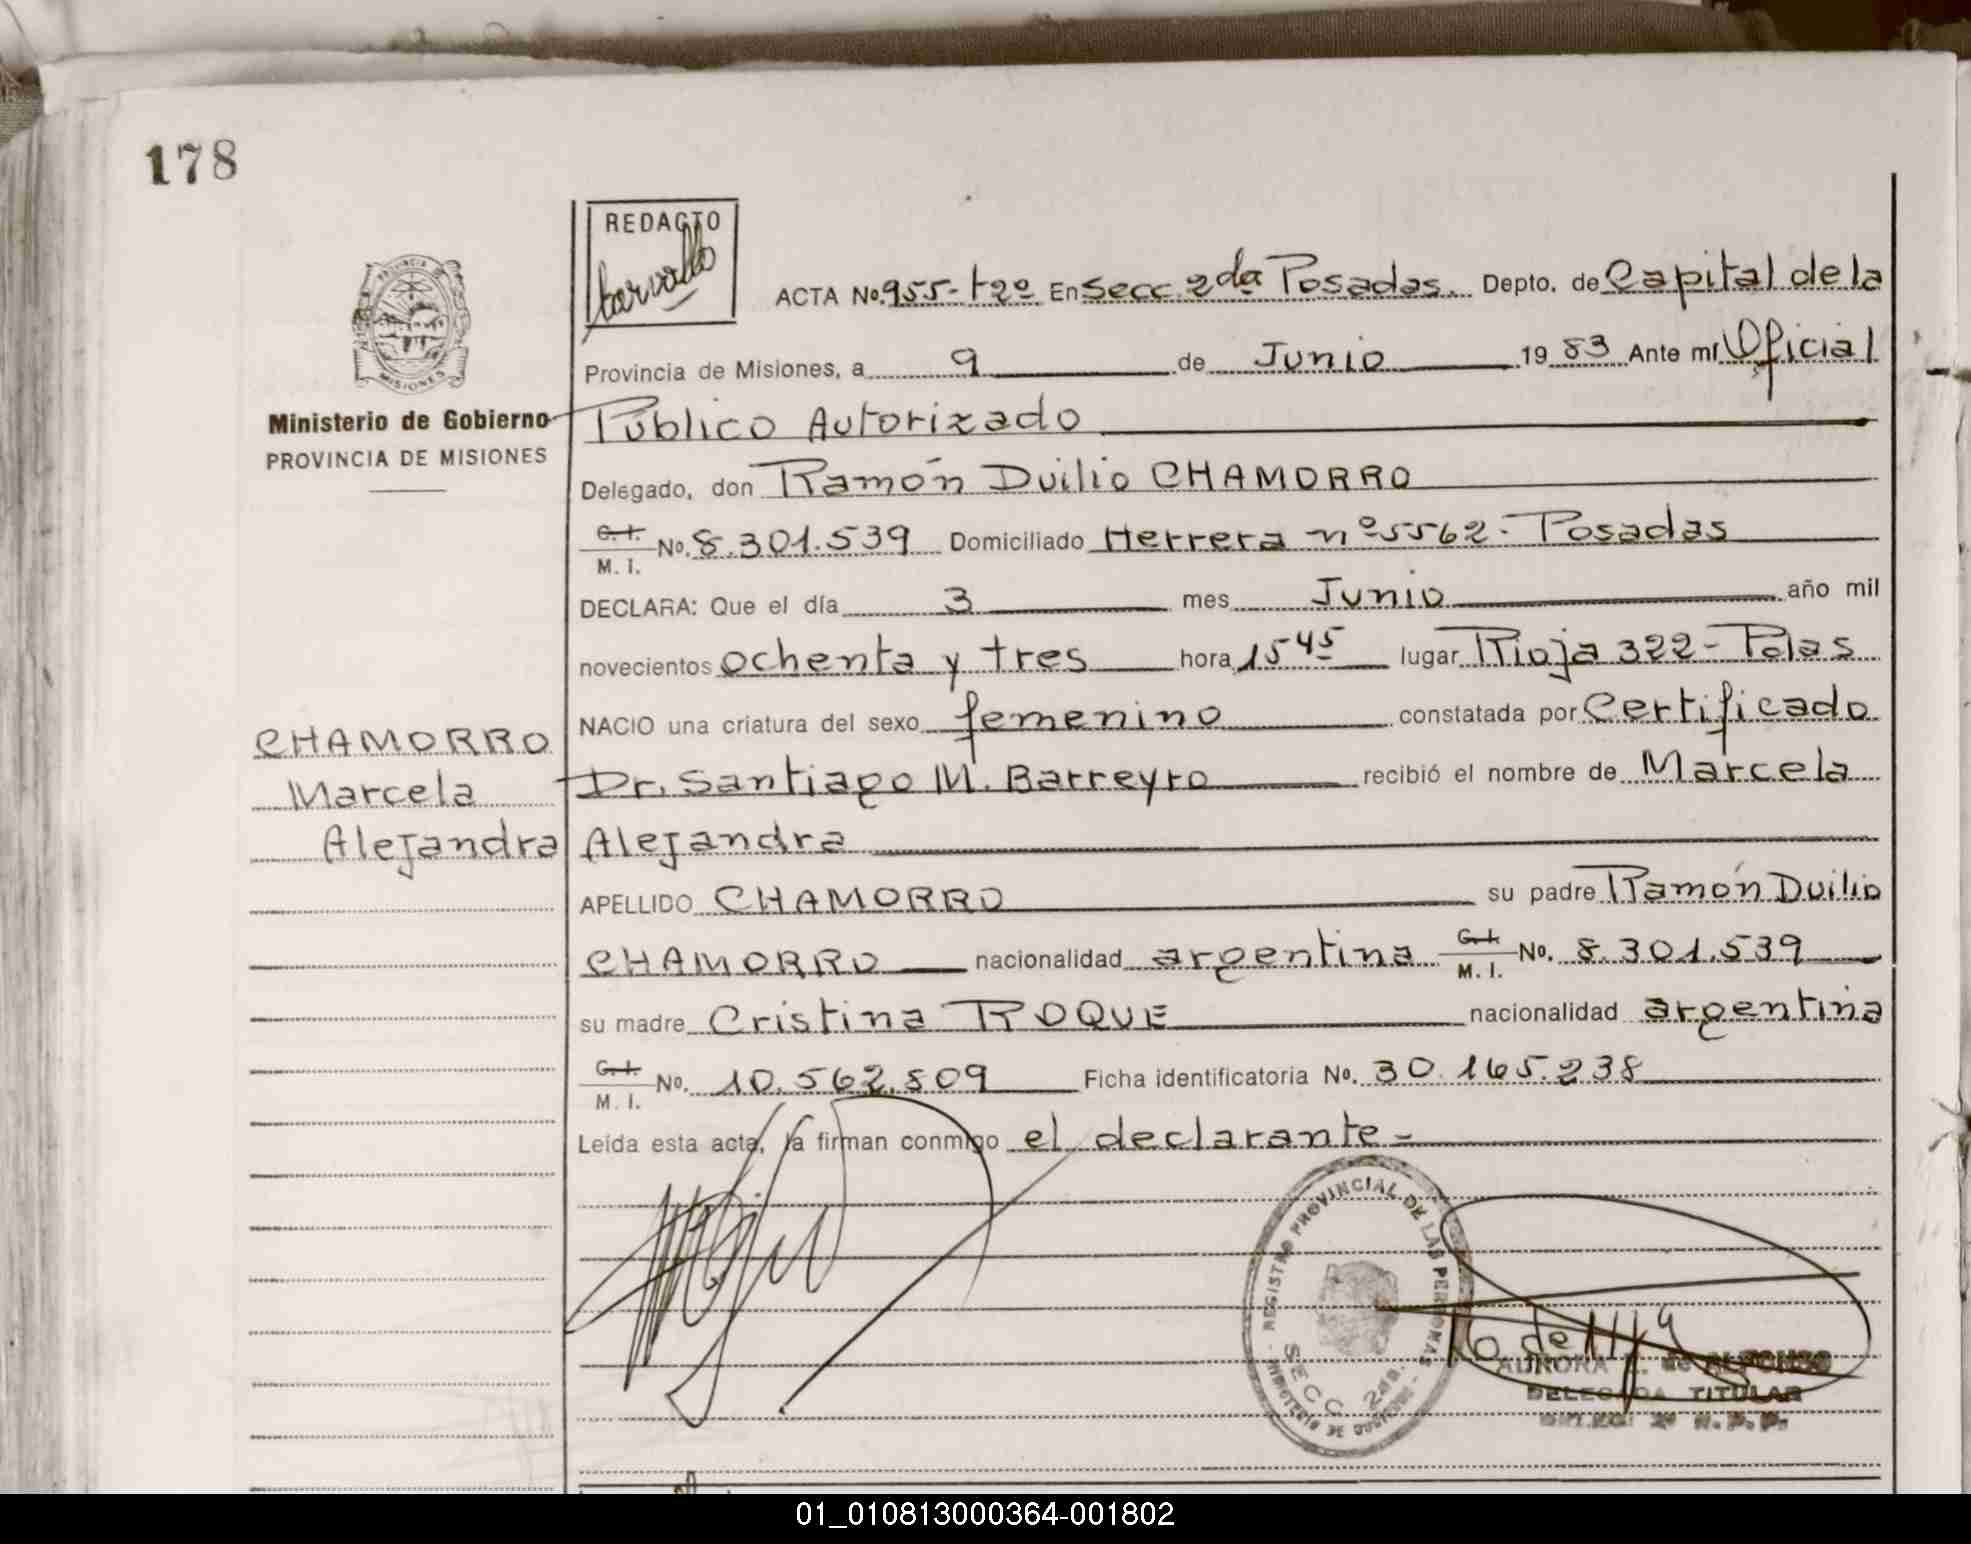 178
REDACTO
ACTA No. 955-tº2º En Secc. 2da Posadas. Depto. de Capital de la
Provincia de Misiones, a 9 de Junio 1983 Ante mí Oficial
Ministerio de Gobierno
PROVINCIA DE MISIONES
Público Autorizado
Delegado, don Ramón Duilio CHAMORRO
C.I. M. I. No. 8.301.539 Domiciliado Herrera nº 5562 - Posadas
DECLARA: Que el día 3 mes Junio año mil
novecientos ochenta y tres hora 15 45 lugar Rioja 322 - Pdas
NACIO una criatura del sexo femenino constatada por Certificado
CHAMORRO
Marcela
Alejandra
Dr. Santiago M. Barreyro recibió el nombre de Marcela
Alejandra
APELLIDO CHAMORRO su padre Ramón Duilio
CHAMORRO nacionalidad argentina C.I. M. I. No. 8.301.539
su madre Cristina ROQUE nacionalidad argentina
C.I. M. I. No. 10.562.809 Ficha identificatoria No. 30.165.238
Leída esta acta, la firman conmigo el declarante -
REGISTRO PROVINCIAL DE LAS PERSONAS
SECC. 2da.
AURORA
DELEGADA TITULAR
01_010813000364-001802